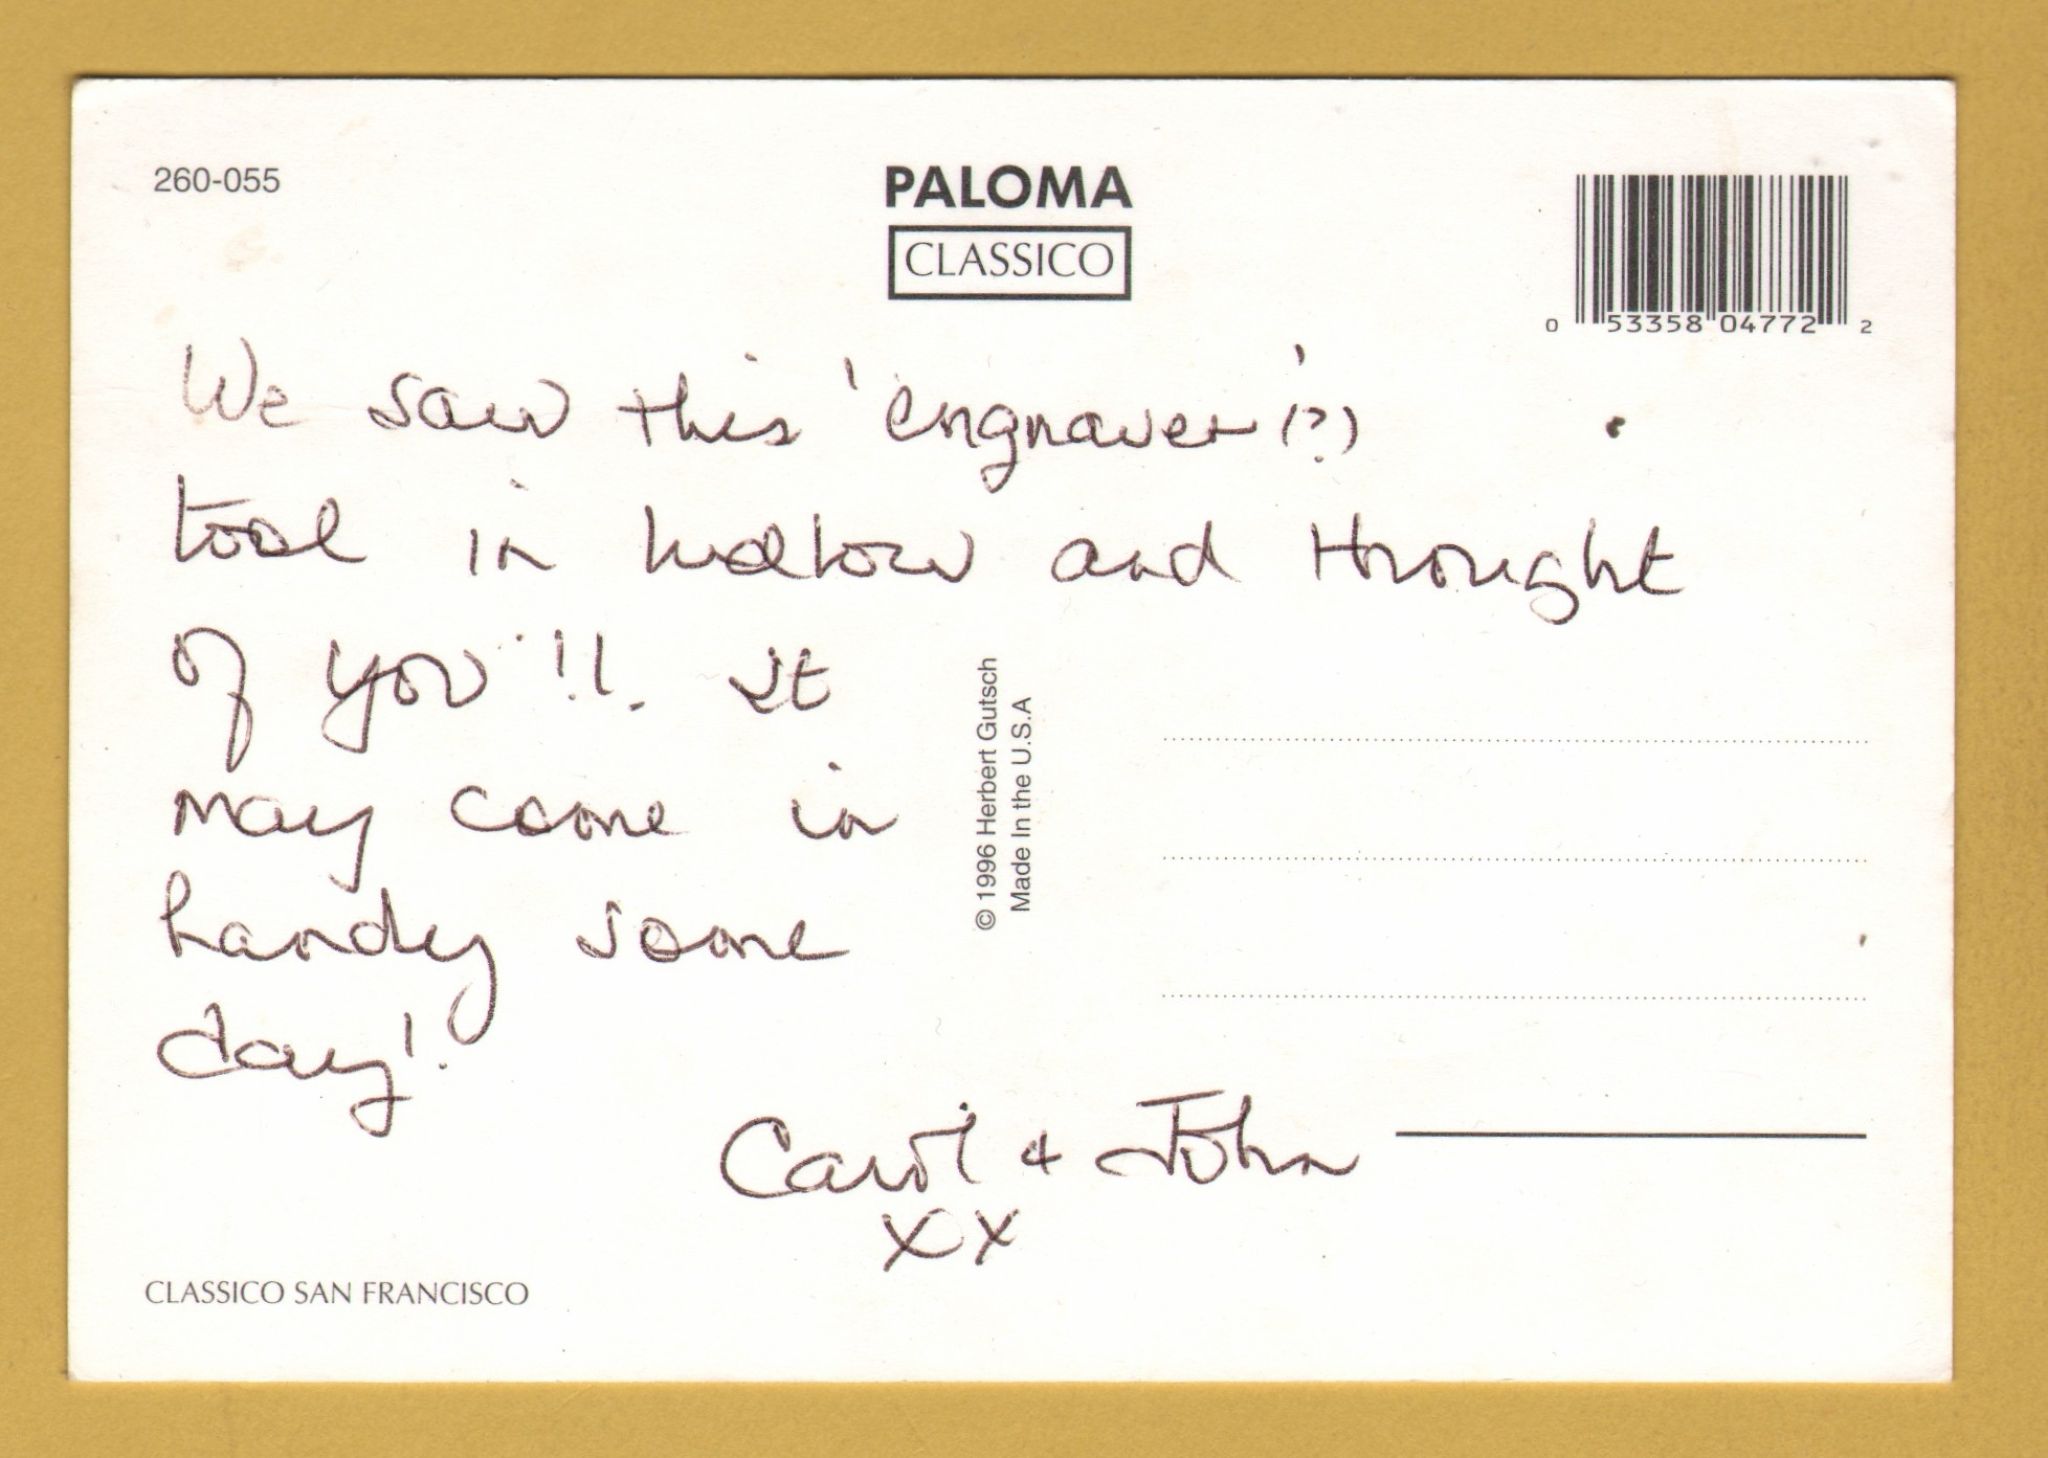 260-055
PALOMA
CLASSICO
0 53358 04772 2
We saw this 'engraver'(?)
tool in Ludlow and thought
of you!!. It
may come in
handy some
day!.
Carol & John
xx
© 1996 Herbert Gutsch
Made In the U.S.A
CLASSICO SAN FRANCISCO